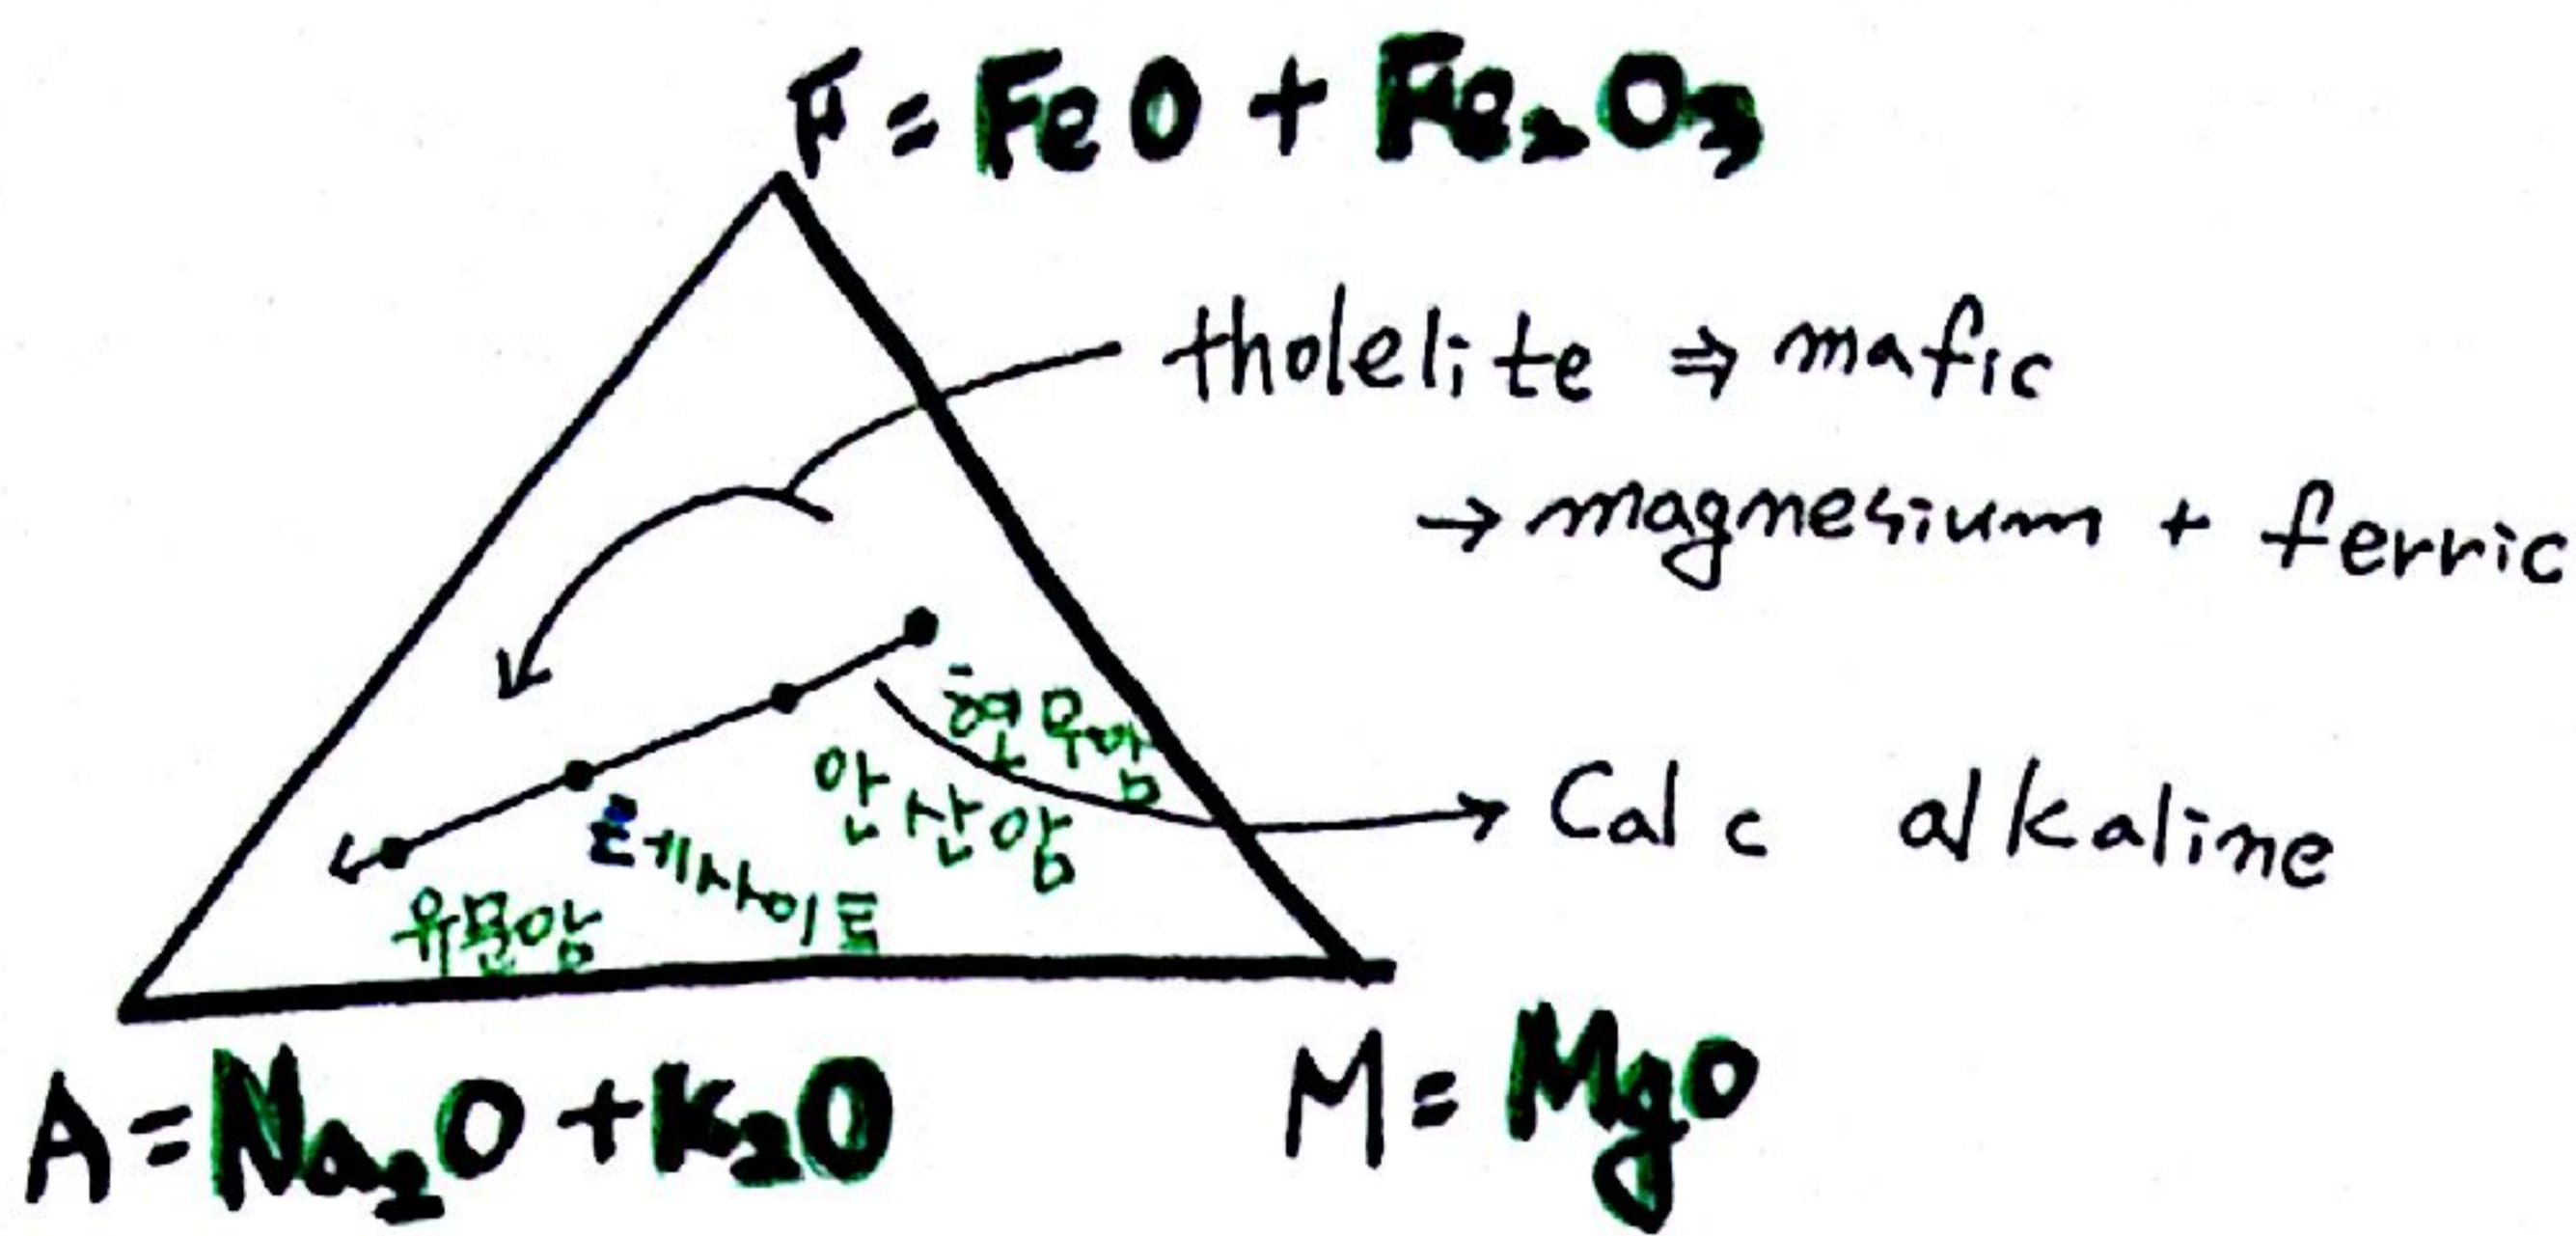 F = FeO + Fe₂O₃
tholelite ⇒ mafic
→ magnesium + ferric
현무암
안산암
Calc alkaline
데사이트
유문암
A = Na₂O + K₂O
M = MgO